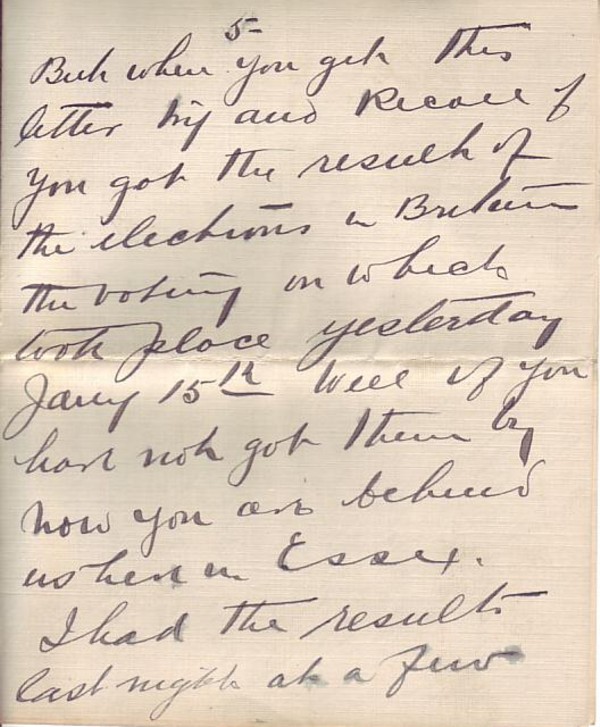 5-
But when you get this
letter try and Recall if
you got the result of
the elections in Britain
the voting on which
took place yesterday
Jany 15th Well if you
have not got them by
now you are behind
us here in Essex.
I had the results
last night at a few